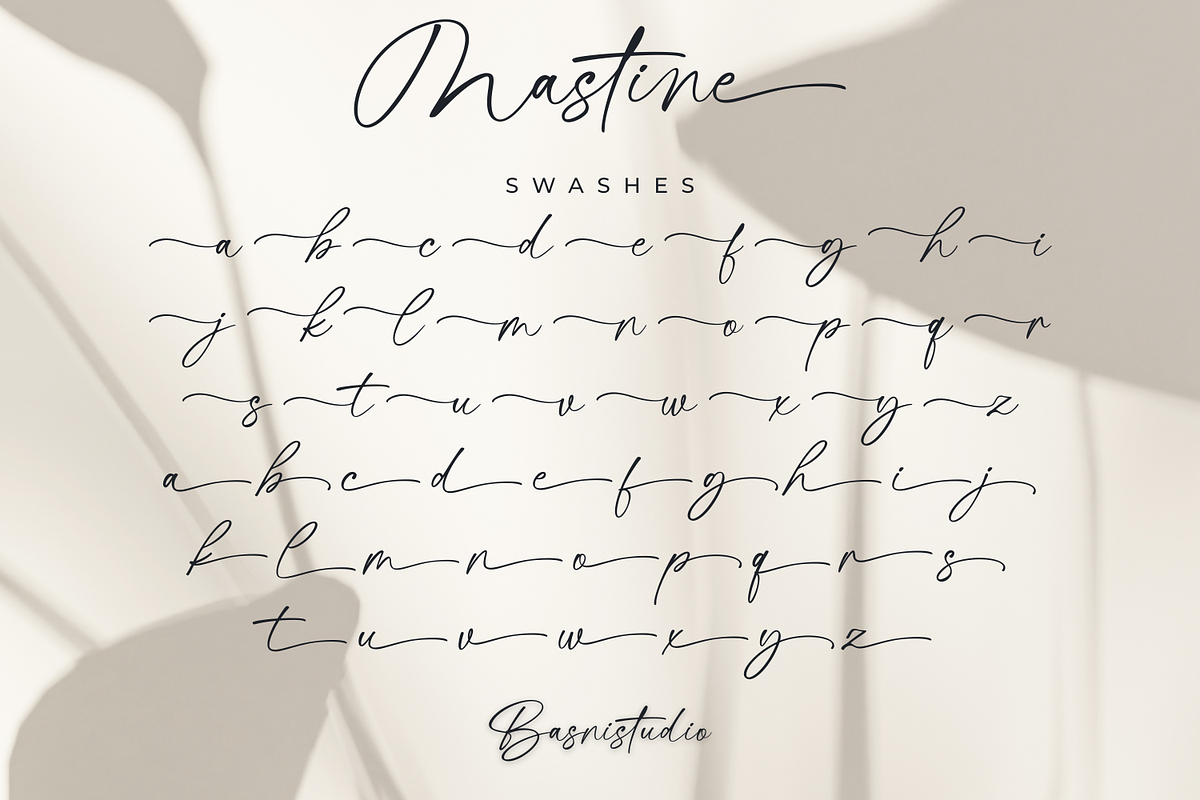 Mastine
SWASHES
a b c d e f g h i
j k l m n o p q r
s t u v w x y z
a b c d e f g h i j
k l m n o p q r s
t u v w x y z
Basnistudio